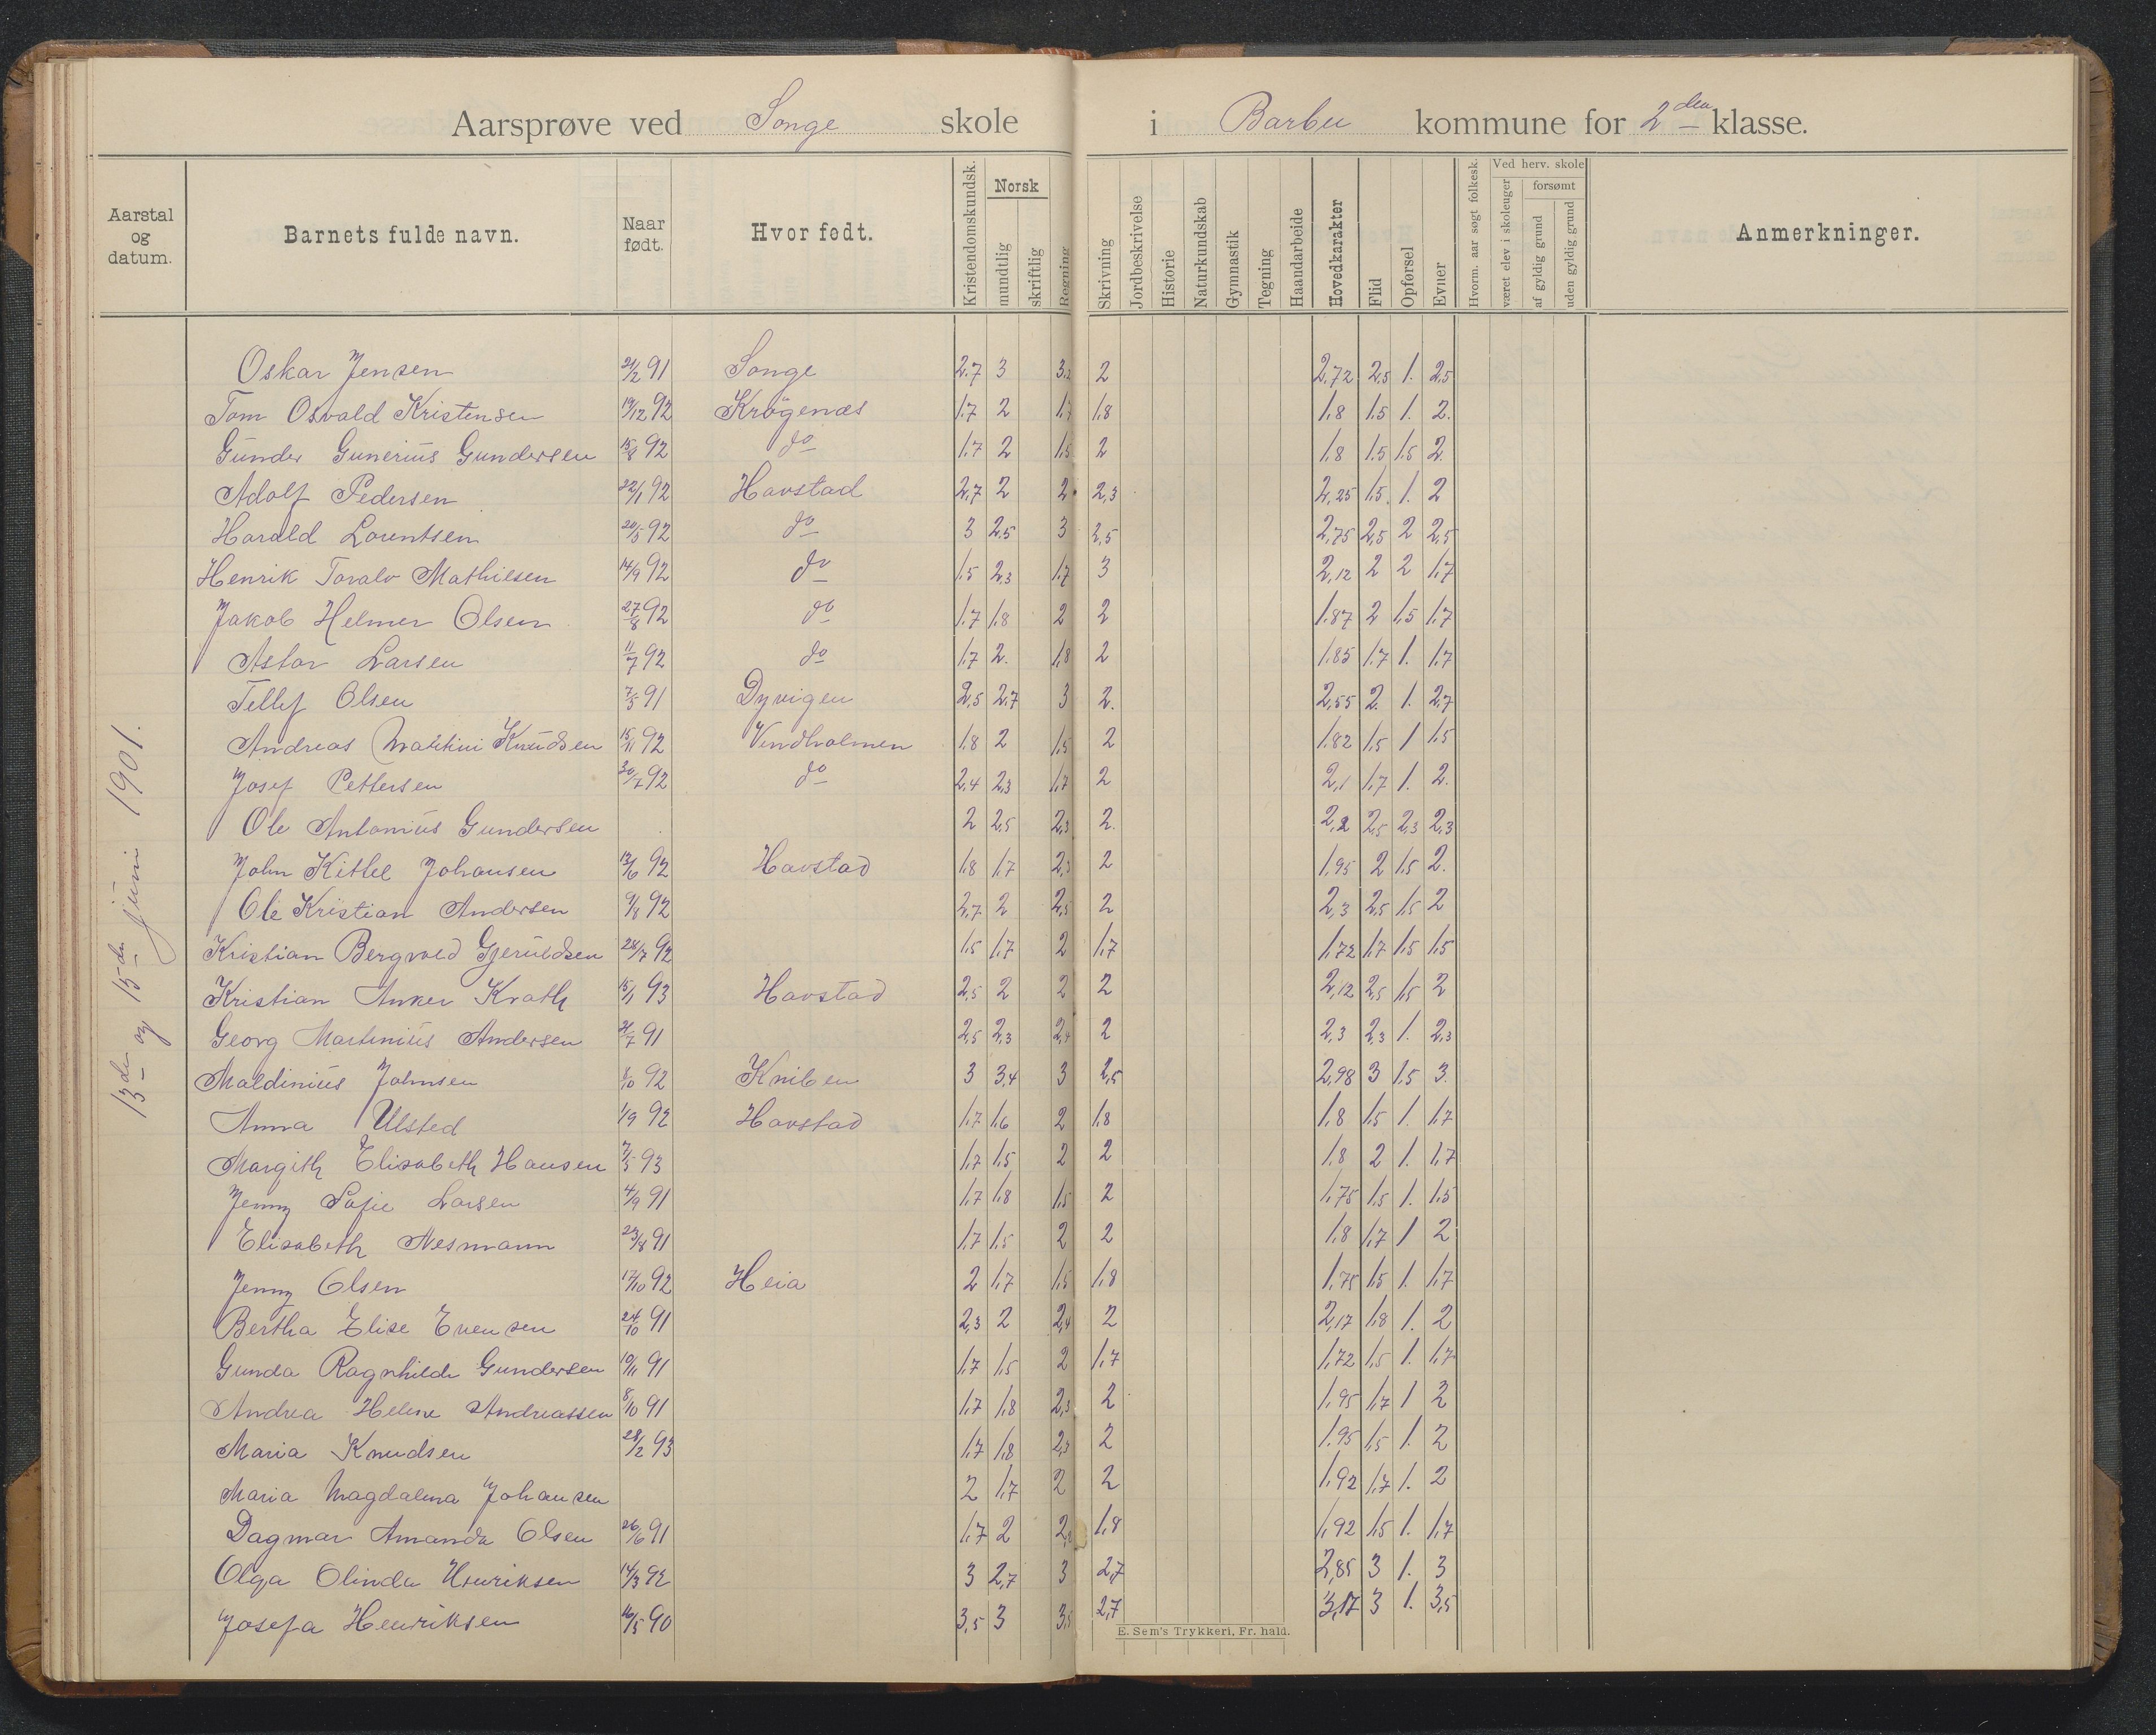 Aarsprøve ved Songe skole i Barbu kommune for 2den klasse.
Aarstal og datum. Barnets fulde navn. Naar født. Hvor født. Kristendomskundsk. Norsk mundtlig skriftlig Regning Skrivning Jordbeskrivelse Historie Naturkundskab Gymnastik Tegning Haandarbeide Hovedkarakter Flid Opførsel Evner Hvorm. aar søgt folkesk. Ved herv. skole været elev i skoleuger forsømt af gyldig grund uden gyldig grund Anmerkninger.
13de og 15de juni 1901.
Oskar Jensen 21/2 91 Songe 2,7 3 3,2 2 2,72 2,5 1. 2,5
Tom Osvald Kristensen 19/12 92 Krøgenæs 1,7 2 1,7 1,8 1,8 1,5 1. 2.
Gunder Gunerius Gundersen 15/8 92 do 1,7 2 1,5 2 1,8 1,5 1,5 2.
Adolf Pedersen 22/1 92 Havstad 2,7 2 2 2,3 2,25 1,5 1. 2
Harald Lorentsen 20/5 92 do 3 2,5 3 2,5 2,75 2,5 2 2,5
Henrik Toralv Mathiesen 14/9 92 do 1,5 2,3 1,7 3 2,12 2 2 1,7
Jakob Helmer Olsen 27/8 92 do 1,7 1,8 2 2 1,87 2 1,5 1,7
Astor Larsen 11/7 92 do 1,7 2. 1,8 2 1,85 1,7 1. 1,7
Tellef Olsen 7/5 91 Dyvigen 2,5 2,7 3 2. 2,55 2. 1. 2,7
Andreas Martini Knudsen 15/11 92 Vindholmen 1,8 2 1,5 2 1,82 1,5 1 1,5
Josef Pettersen 30/7 92 do 2,4 2,3 1,7 2 2,1 1,7 1. 2.
Ole Antonius Gundersen 2 2,5 2,3 2. 2,2 2,5 2,3 2,3
John Kittel Johansen 13/6 92 Havstad 1,8 1,7 2,3 2 1,95 2 1,5 2.
Ole Kristian Andersen 9/8 92 2,7 2 2,5 2 2,3 2,5 1,5 2
Kristian Bergvald Gjeruldsen 28/7 92 1,5 1,7 2 1,7 1,72 1,7 1,5 1,5
Kristian Anker Krath 15/1 93 Havstad 2,5 2 2 2 2,12 2,5 1,5 2
Georg Martinius Andersen 21/7 91 2,5 2,3 2,4 2 2,3 2,3 1. 2,3
Maldinius Johnsen 8/10 92 Kniben 3 3,4 3 2,5 2,98 3 1,5 3.
Anna Ulsted 1/9 92 Havstad 1,7 1,6 2 1,8 1,8 1,5 1. 1,7
Margith Elisabeth Hansen 7/5 93 1,7 1,5 2 2 1,8 2 1. 1,7
Jenny Sofie Larsen 4/9 91 1,7 1,8 1,5 2 1,75 1,5 1. 1,5
Elisabeth Nesmann 23/8 91 1,7 1,5 2 2 1,8 1,7 1 2
Jenny Olsen 17/10 92 Heia 2 1,7 1,5 1,8 1,75 1,5 1. 1,7
Bertha Elise Evensen 24/10 91 2,3 2 2,4 2 2,17 1,8 1. 2
Gunda Ragnhilde Gundersen 10/11 91 1,7 1,5 2 1,7 1,72 1,5 1. 1,7
Andrea Helene Andreassen 8/10 91 1,7 1,8 2,3 2 1,95 1,7 1 2
Maria Knudsen 28/2 93 1,7 1,8 2,3 2 1,95 1,5 1. 2
Maria Magdalena Johansen 2 1,7 2 2 1,92 1,7 1. 2
Dagmar Amanda Olsen 26/6 91 1,7 2 1,8 1,92 1,5 1. 1,7
Olga Olinda Henriksen 14/3 92 3 2,7 3 2,7 2,85 3 1. 3
Josefa Henriksen 16/5 90 3,5 3 3,5 2,7 3,17 3 1. 3,5
E. Sem's Trykkeri, Fr. hald.